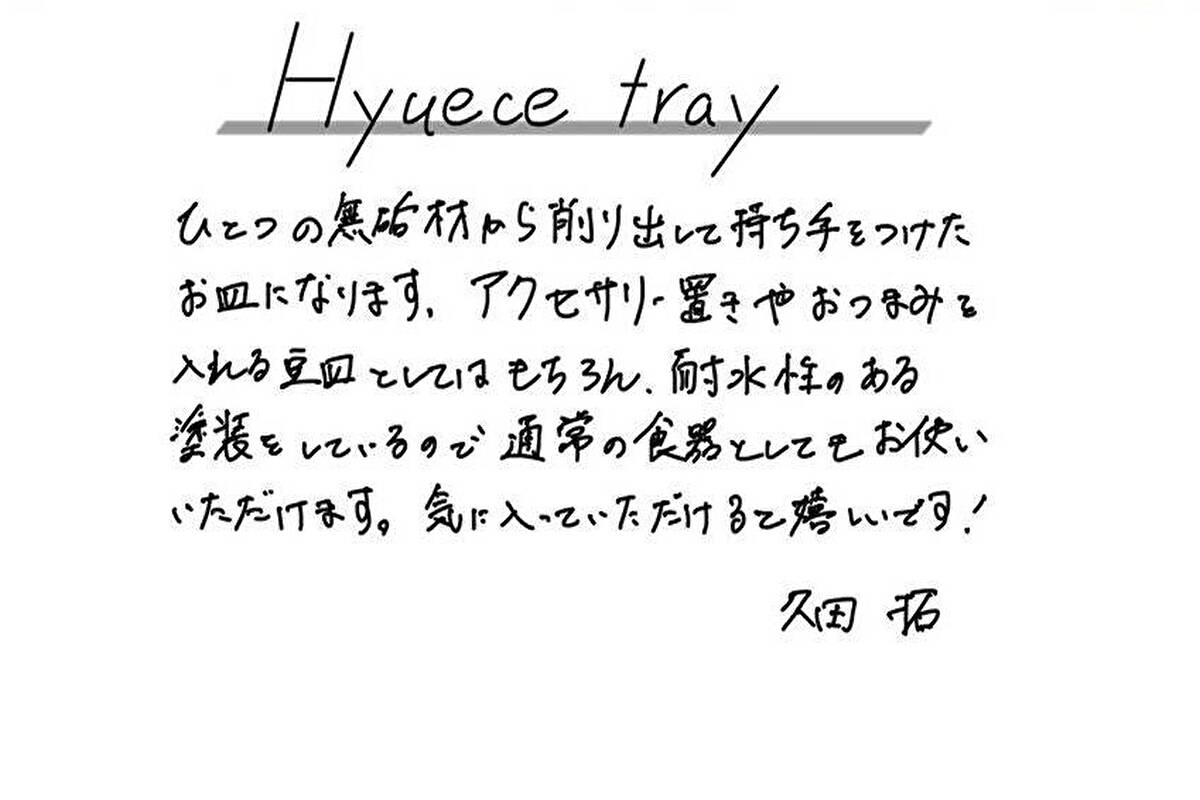 Hyuece tray
ひとつの無垢材から削り出して持ち手をつけた
お皿になります。アクセサリー置きやおつまみを
入れる豆皿としてはもちろん、耐水性のある
塗装をしているので通常の食器としてもお使い
いただけます。気に入っていただけると嬉しいです!
久田 拓